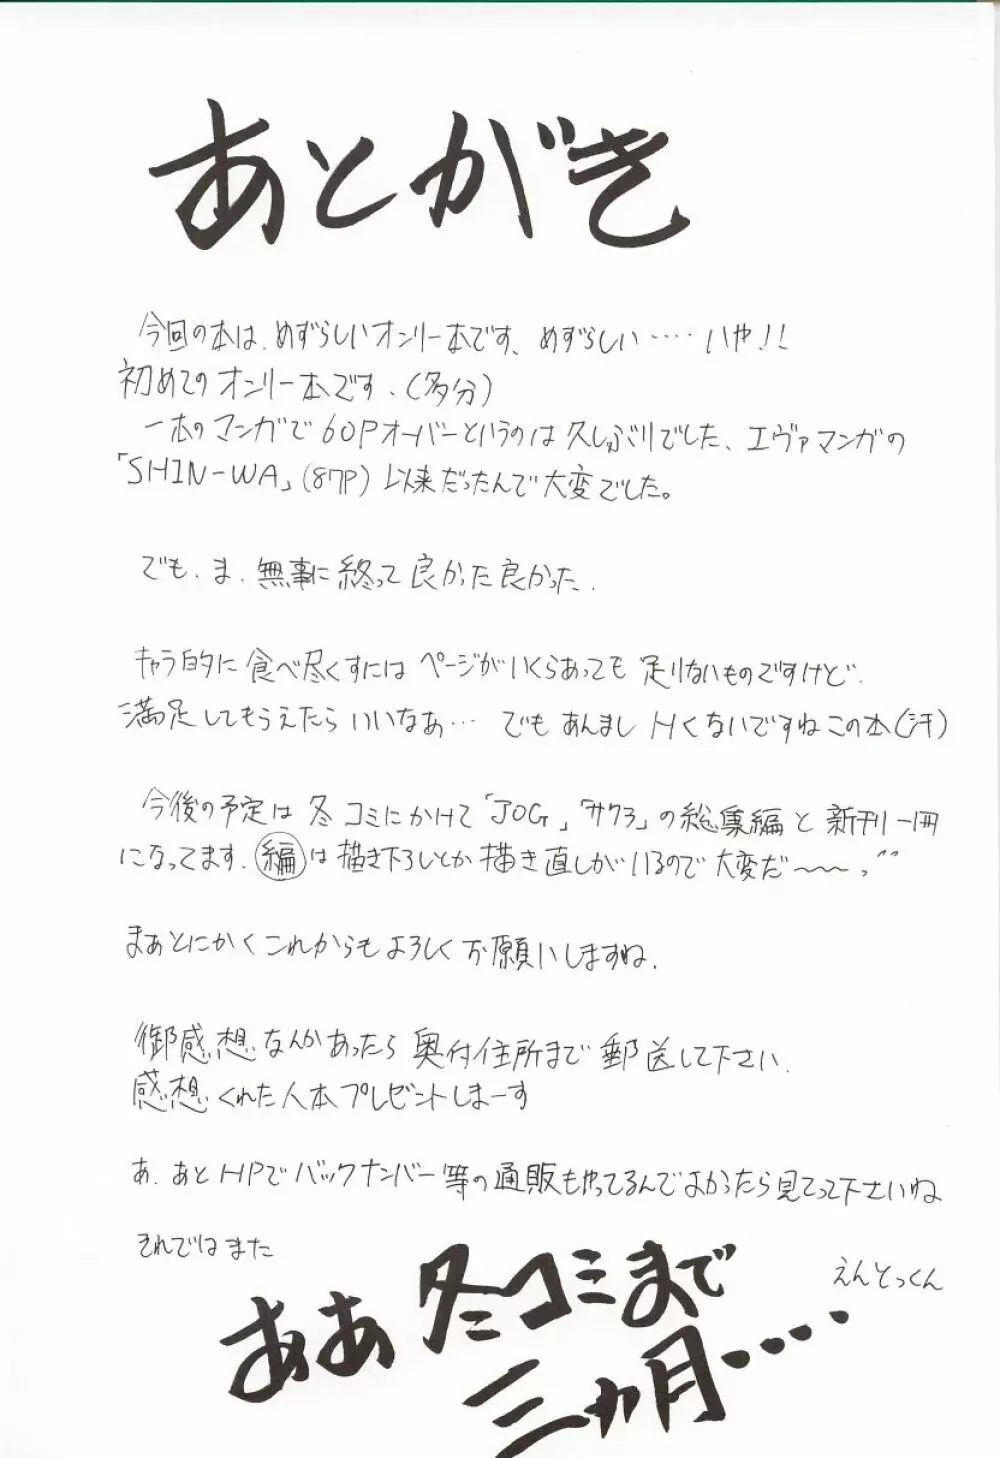 あとがき
今回の本は、めずらしいオンリー本です、めずらしい‥‥‥いや!!
初めてのオンリー本です.(多分)
一本のマンガで60Pオーバーというのは久しぶりでした、エヴァマンガの
「SHIN-WA」(87P)以来だったんで大変でした。
でも.ま.無事に終って良かった良かった.
キャラ的に食べ尽くすにはページがいくらあっても足りないものですけど.
満足してもらえたらいいなぁ… でもあんましHくないですねこの本(汗)
今後の予定は冬コミにかけて「JOG」「サクラ」の総集編と新刊一冊
になってます.編は描き下ろしとか描き直しがいるので大変だ〜〜っ
まぁとにかくこれからもよろしくお願いしますね.
御感想なんかあったら奥付住所まで郵送して下さい.
感想くれた人本プレゼントしまーす
あ.あとHPでバックナンバー等の通販もやってるんでよかったら見てって下さいね
それではまた
えんとっくん
ああ冬コミまで
三ヵ月‥‥